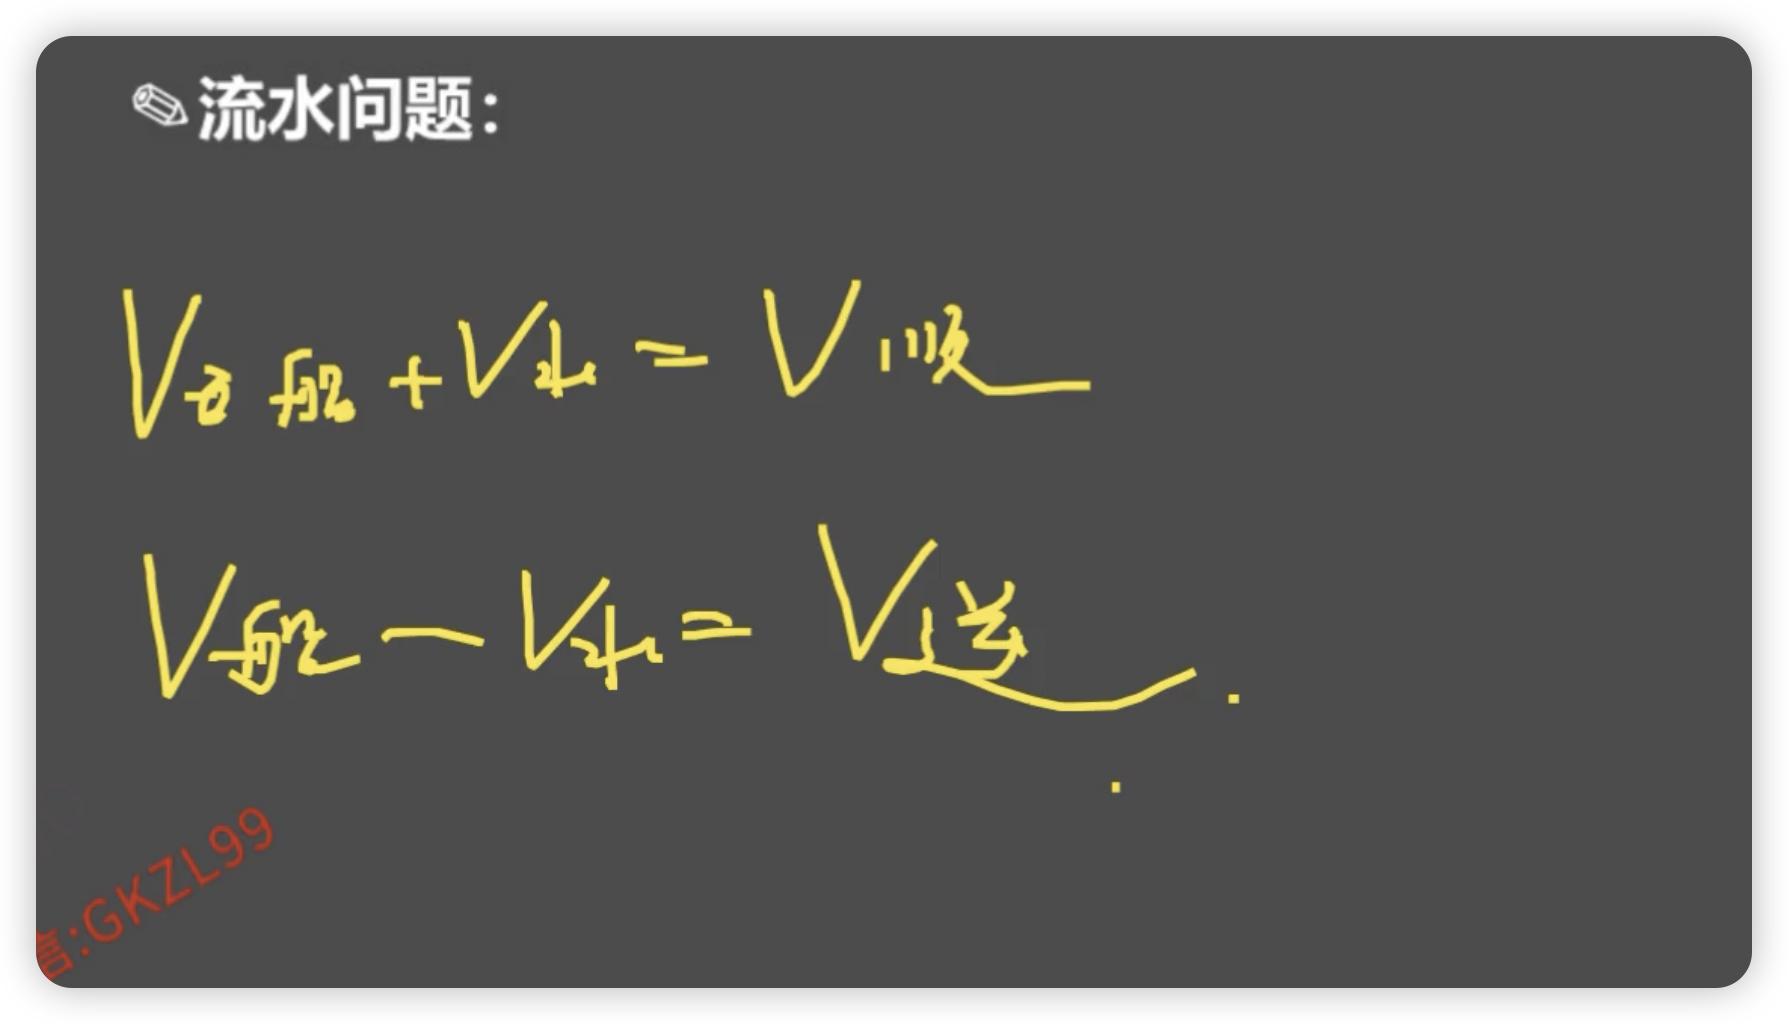 流水问题：
V船 + V水 = V顺
V船 - V水 = V逆.
信:GKZL99